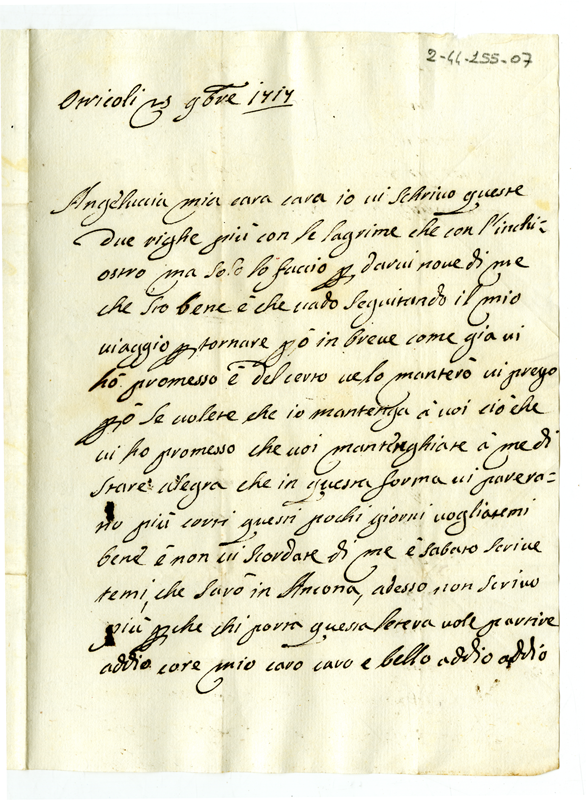 2-44-255-07
Otricoli 25 9bre 1717
Angeluccia mia cara cara io vi schrivo queste
due righe più con le lagrime che con l'inchi=
ostro ma solo lo faccio p darvi nove di me
che sto bene è che vado seguitando il mio
viaggio p tornare pò in breve come gia vi
hò promesso è del certo ve lo manterò vi prego
pò se volete che io mantenga à voi ciò che
vi ho promesso che voi mantegniate à me di
stare alegra che in questa forma vi parera=
no più corti questi pochi giorni vogliatemi
bene è non vi scordate di me è sabato scrive
temi, che sarò in Ancona, adesso non scrivo
più pche chi porta questa letera vole partire
addio core mio caro caro e bello addio addio